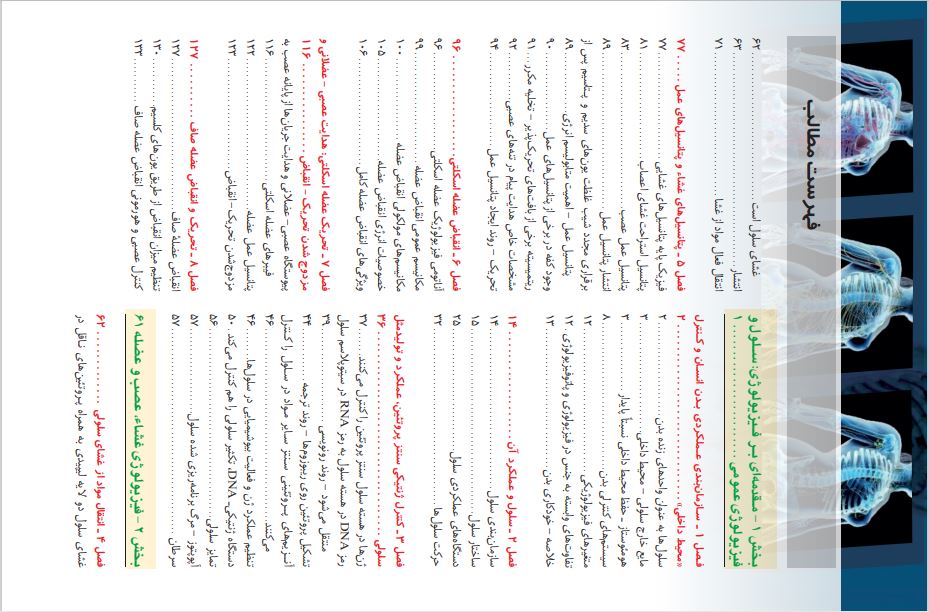 فهرست مطالب
بخش ۱ – مقدمه‌ای بر فیزیولوژی: سلول و
فیزیولوژی عمومی ۱
فصل ۱ ـ سازمان‌بندی عملکردی بدن انسان و کنترل
«محیط داخلی» ۲
سلول‌ها به عنوان واحدهای زنده بدن ۲
مایع خارج سلولی – محیط داخلی ۳
هومئوستاز – حفظ محیط داخلی نسبتاً پایدار ۳
سیستم‌های کنترلی بدن ۸
متغیرهای فیزیولوژیکی ۱۲
تفاوت‌های وابسته به جنس در فیزیولوژی و پاتوفیزیولوژی ۱۲
خلاصه – خودکاری بدن ۱۳
فصل ۲ ـ سلول و عملکرد آن ۱۴
سازمان‌بندی سلول ۱۴
ساختار سلول ۱۵
دستگاه‌های عملکردی سلول ۲۵
حرکت سلول‌ها ۳۲
فصل ۳ ـ کنترل ژنتیکی سنتز پروتئین، عملکرد و تولیدمثل
سلولی ۳۶
ژن‌ها در هسته سلول سنتز پروتئین را کنترل می‌کنند ۳۷
رمز DNA در هسته سلول به رمز RNA در سیتوپلاسم سلول
منتقل می‌شود – روند رونویسی ۳۹
تشکیل پروتئین روی ریبوزوم‌ها – روند ترجمه ۴۴
آنزیم‌های پروتئینی سنتز سایر مواد در سلول را کنترل
می‌کنند ۴۶
تنظیم عملکرد ژن و فعالیت بیوشیمیایی در سلول‌ها ۴۶
دستگاه ژنتیکی-DNA، تکثیر سلولی را هم کنترل می‌کند ۵۰
تمایز سلولی ۵۶
آپوپتوز – مرگ برنامه‌ریزی شده سلول ۵۷
سرطان ۵۷
بخش ۲ – فیزیولوژی غشاء، عصب و عضله ۶۱
فصل ۴ ـ انتقال مواد از غشای سلولی ۶۲
غشای سلول دو لایه لیپیدی به همراه پروتئین‌های ناقل در
غشای سلول است ۶۲
انتشار ۶۳
انتقال فعال مواد از غشا ۷۱
فصل ۵ ـ پتانسیل‌های غشاء و پتانسیل‌های عمل ۷۷
فیزیک پایه پتانسیل‌های غشایی ۷۷
پتانسیل استراحت غشای اعصاب ۸۱
پتانسیل عمل عصب ۸۳
انتشار پتانسیل عمل ۸۹
برقراری مجدد شیب غلظت یون‌های سدیم و پتاسیم پس از
پتانسیل عمل – اهمیت متابولیسم انرژی ۸۹
وجود کفه در برخی از پتانسیل‌های عمل ۹۰
ریتمیسیته برخی از بافت‌های تحریک‌پذیر – تخلیه مکرر ۹۱
مشخصات خاص هدایت پیام در تنه‌های عصبی ۹۲
تحریک – روند ایجاد پتانسیل عمل ۹۴
فصل ۶ ـ انقباض عضله اسکلتی ۹۶
آناتومی فیزیولوژیک عضله اسکلتی ۹۶
مکانیسم عمومی انقباض عضله ۹۹
مکانیسم‌های مولکولی انقباض عضله ۱۰۰
خصوصیات انرژی انقباض عضله ۱۰۵
ویژگی‌های انقباض عضلهٔ کامل ۱۰۶
فصل ۷ ـ تحریک عضله اسکلتی: هدایت عصبی – عضلانی و
مزدوج شدن تحریک – انقباض ۱۱۶
پیوستگاه عصبی – عضلانی و هدایت جریان‌ها از پایانه عصب به
فیبرهای عضله اسکلتی ۱۱۶
پتانسیل عمل عضله ۱۲۲
مزدوج‌شدن تحریک-انقباض ۱۲۳
فصل ۸ ـ تحریک و انقباض عضله صاف ۱۲۷
انقباض عضلهٔ صاف ۱۲۷
تنظیم میزان انقباض از طریق یون‌های کلسیم ۱۳۰
کنترل عصبی و هورمونی انقباض عضله صاف ۱۳۳